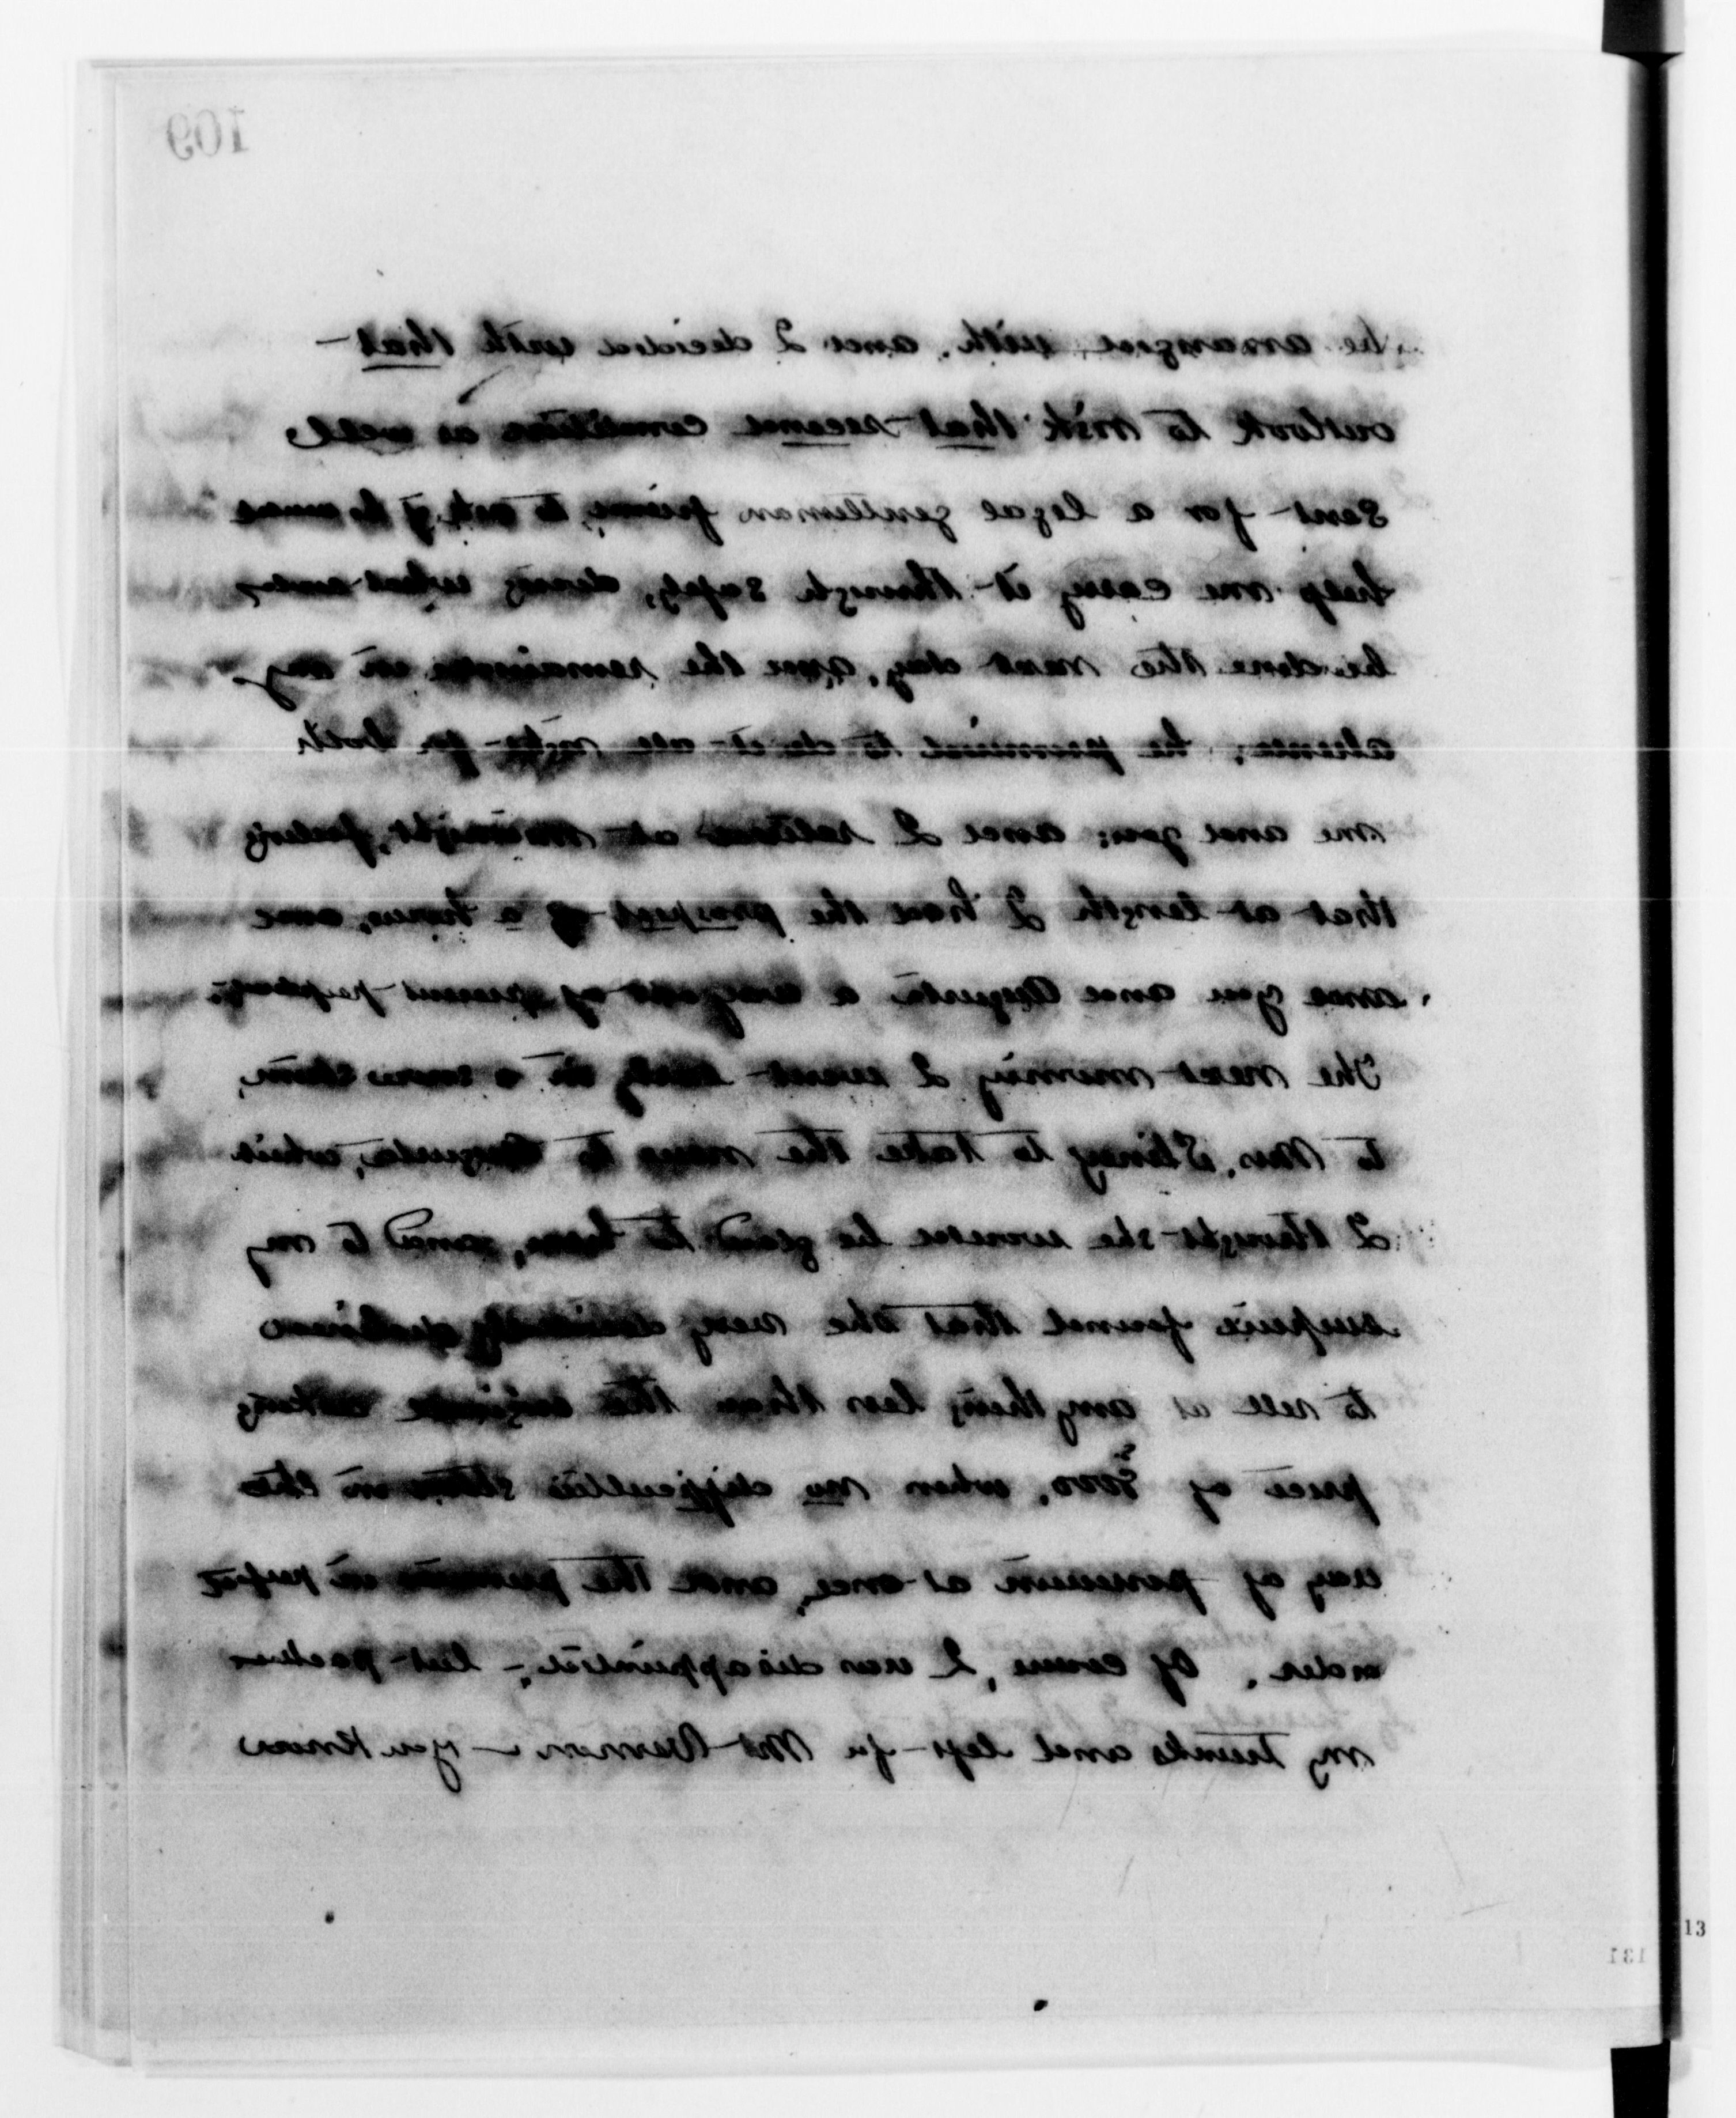 109
be arranged with, and I decided with that
outlook to risk that second condition as well,
Sent for a legal gentleman friend, to
help me carry it through safely, doing what could
be done the next day, and the remainder in my
absence, he promised to do it all right for both
me and you; and I retired at midnight, feeling
that at length I had the prospect of a home, and
and you and Augusta a
The next morning I went early in a snow storm,
to Mrs. Shiney to take the news to Augusta, which
I thought she would be glad to hear, and to my
surprise found that she very decidedly declined
to sell at anything less than the original asking
price of 5000, when no difficulties stood in the
way of possession at once, and the premises in perfect
order. Of course, I was disappointed, but packed
my trunks and left for Mt Vernon – you know
131
13